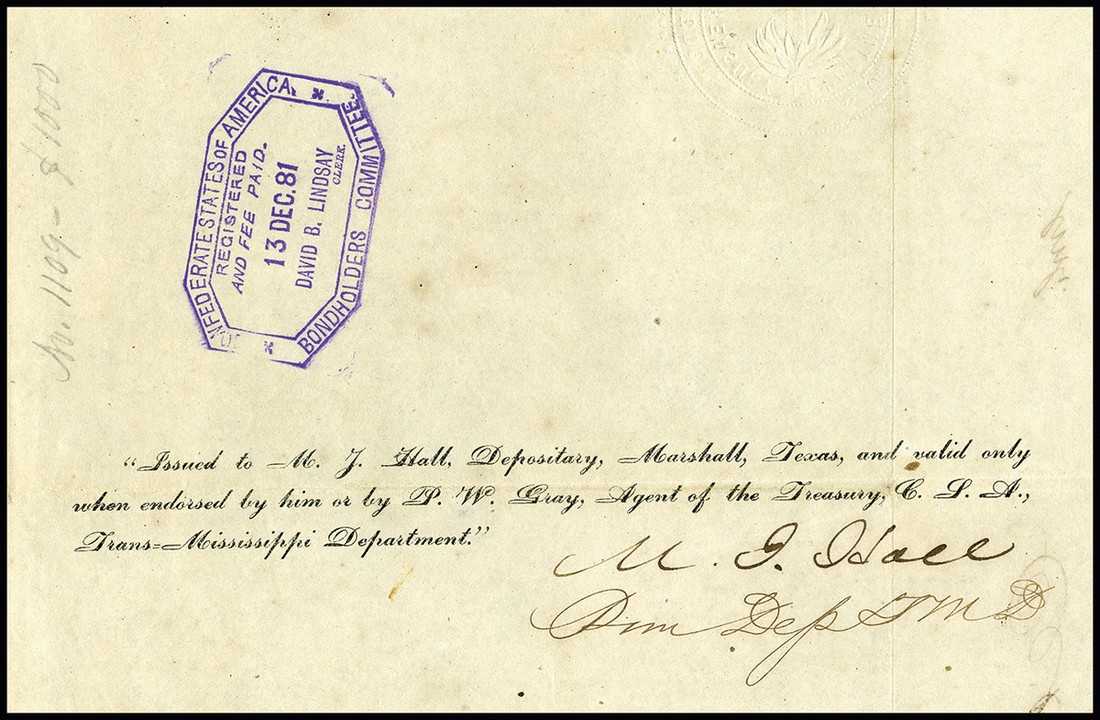 No. 1109 - $1000
CONFEDERATE STATES OF AMERICA
BONDHOLDERS COMMITTEE.
REGISTERED
AND FEE PAID.
13 DEC. 81
DAVID B. LINDSAY
CLERK.
"Issued to M. J. Hall, Depositary, Marshall, Texas, and valid only
when endorsed by him or by P. W. Gray, Agent of the Treasury, C. S. A.,
Trans=Mississippi Department."
M. J. Hall
Dep T M D